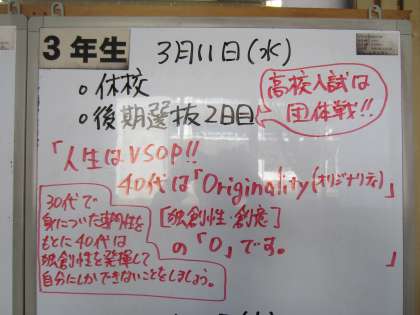 3年生
3月11日(水)
○休校
○後期選抜2日目
高校入試は
団体戦!!
「人生はVSOP!!
40代は「Originality(オリジナリティ)」
[独創性・創意]
の「O」です。
」
30代で
身についた専門性を
もとに40代は
独創性を発揮して
自分にしかできないことをしましょう。